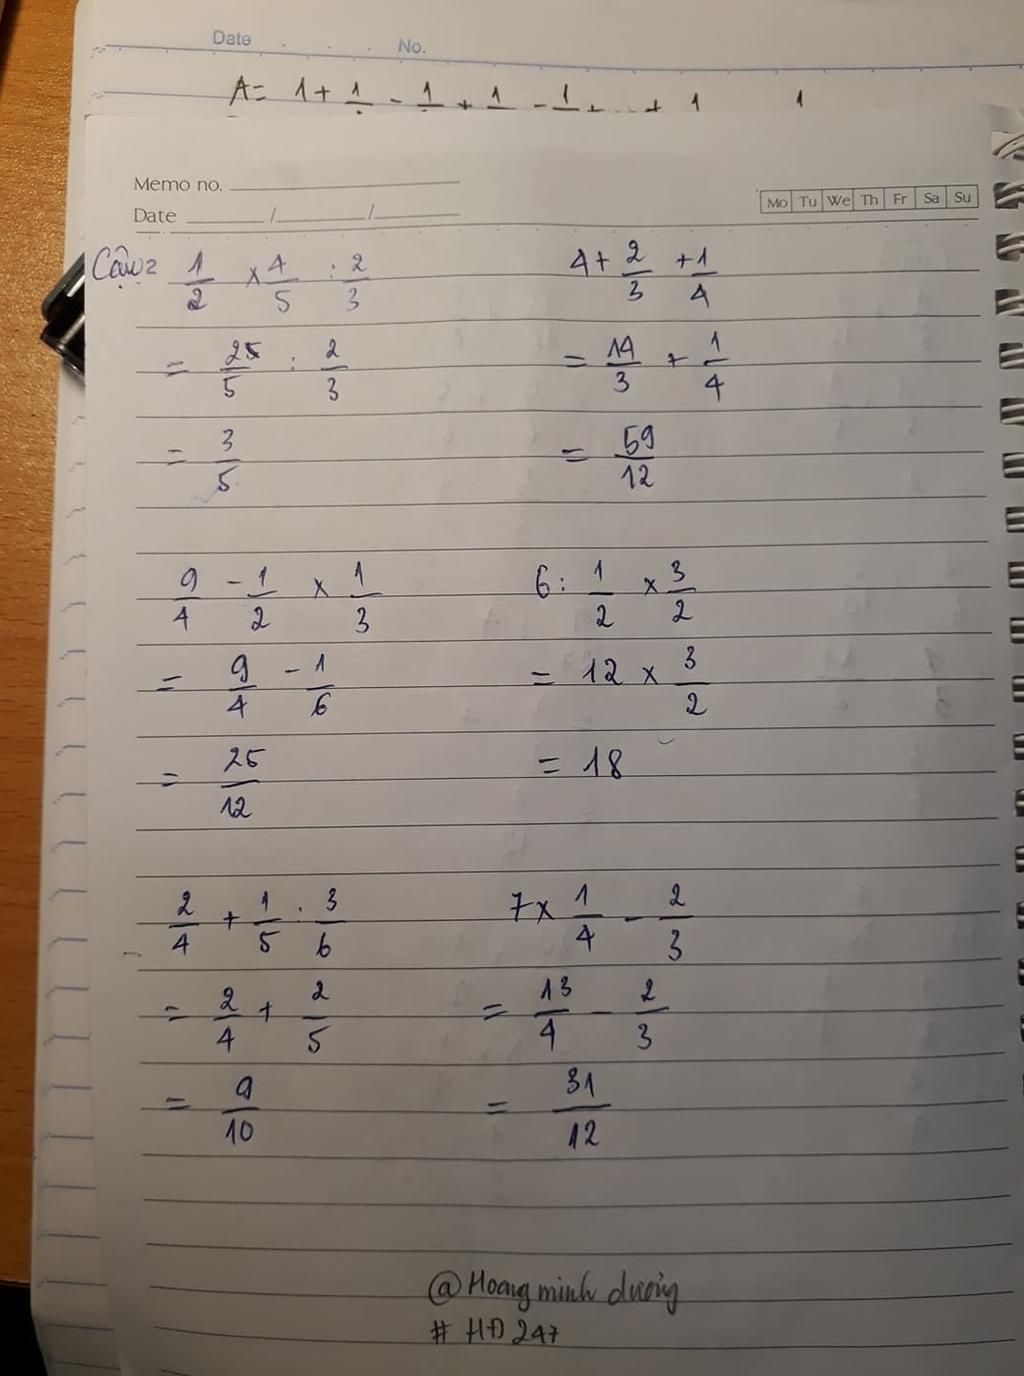 Date . . . No.
A= 1 + 1 - 1 + 1 - 1 + .. + 1 1
Memo no.
Date / /
Mo Tu We Th Fr Sa Su
Câu 2 1/2 × 4/5 : 2/3
= 2/5 : 2/3
= 3/5
4 + 2/3 + 1/4
= 14/3 + 1/4
= 59/12
9/4 - 1/2 × 1/3
= 9/4 - 1/6
= 25/12
6 : 1/2 × 3/2
= 12 × 3/2
= 18
2/4 + 1/5 : 3/6
= 2/4 + 2/5
= 9/10
7 × 1/4 - 2/3
= 13/4 - 2/3
= 31/12
@ Hoang minh dương
# HĐ 247